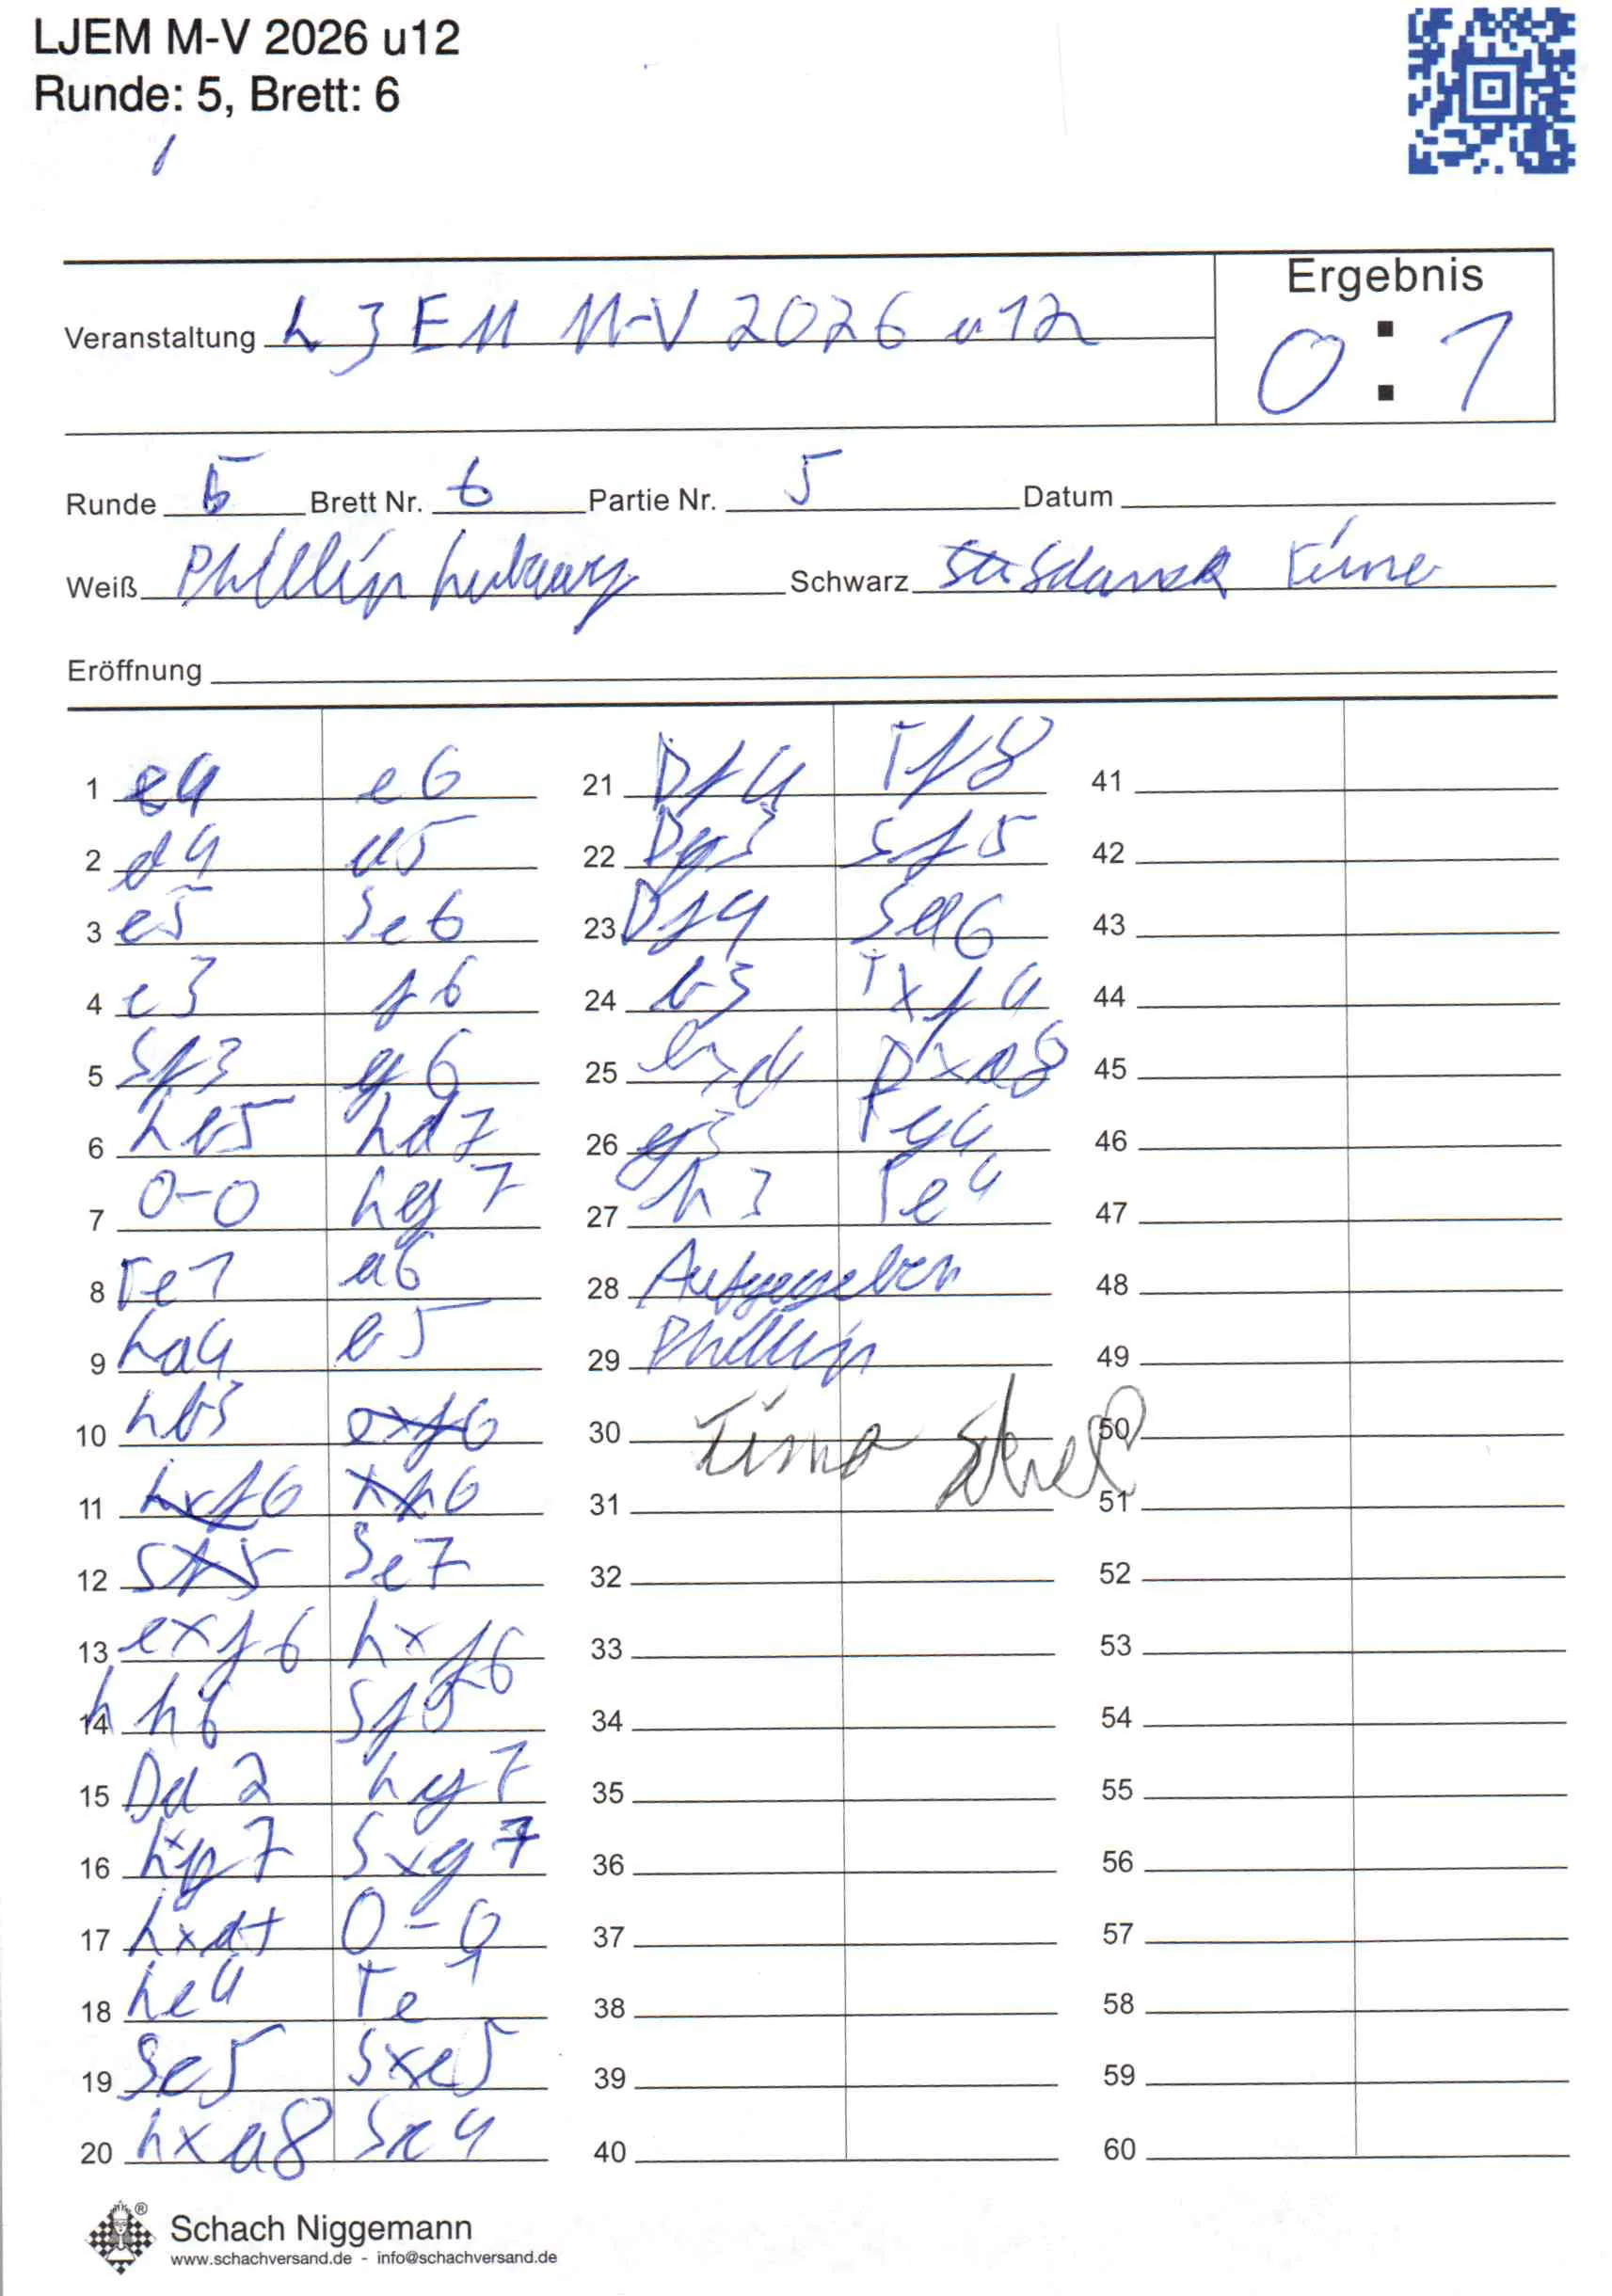 LJEM M-V 2026 u12
Runde: 5, Brett: 6
Ergebnis
Veranstaltung LJEM M-V 2026 u12
0:1
Runde 5 Brett Nr. 6 Partie Nr. 5 Datum
Weiß Phillip Schwarz Timo
Eröffnung
1 e4 e6
2 d4 d5
3 e5 Sc6
4 c3 f6
5 Sf3 g6
6 Lb5 Ld7
7 0-0 Lg7
8 Te1 a6
9 La4 b5
10 Lb3 exf6
11 Lxf6 Lh6
12 Se7
13 exf6 Lxf6
14 Lh6 Sf5
15 Dd2 Lg7
16 Lxg7 Sxg7
17 Lxd+ 0-0
18 Le4 Te
19 Se5 Sxe5
20 Lxa8 Sc4
21 Df4 Tf8
22 Dg3 Sf5
23 Df4 Sd6
24 b3 Txf4
25 bxc4 Dxa8
26 g3 Tg4
27 h3 Te4
28 Aufgegeben
29 Phillip
30 Timo
31
32
33
34
35
36
37
38
39
40
41
42
43
44
45
46
47
48
49
50
51
52
53
54
55
56
57
58
59
60
Schach Niggemann
www.schachversand.de - info@schachversand.de